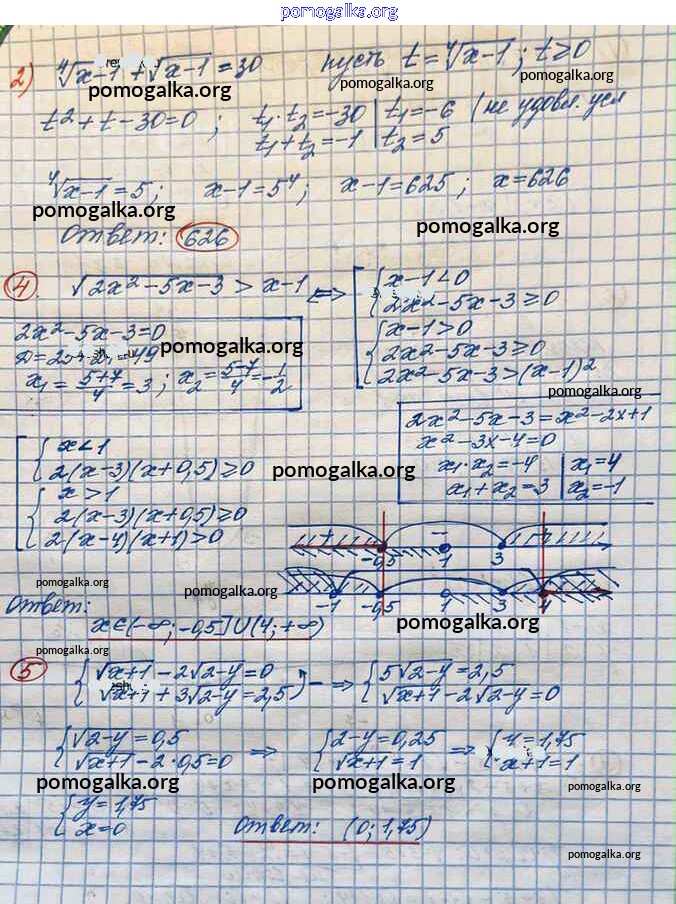 pomogalka.org
2) ∜x-1 + √x-1 = 30 пусть t = ∜x-1 ; t ≥ 0
pomogalka.org pomogalka.org
t² + t - 30 = 0 ; t₁·t₂ = -30 | t₁ = -6 (не удовл. усл
t₁ + t₂ = -1 | t₂ = 5
∜x-1 = 5 ; x-1 = 5⁴ ; x-1 = 625 ; x = 626
pomogalka.org pomogalka.org
Ответ: 626
4. √2x²-5x-3 > x-1 <=> [ { x-1 < 0
2x²-5x-3 ≥ 0
{ x-1 > 0
2x²-5x-3 ≥ 0
2x²-5x-3 > (x-1)²
2x²-5x-3 = 0
pomogalka.org
x₁ = 5+7/4 = 3 ; x₂ = 5-7/4 = -1/2
pomogalka.org
2x²-5x-3 = x²-2x+1
x²-3x-4 = 0
x₁·x₂ = -4 | x₁ = 4
x₁ + x₂ = 3 | x₂ = -1
[ { x < 1
2(x-3)(x+0,5) ≥ 0
{ x > 1
2(x-3)(x+0,5) ≥ 0
2(x-4)(x+1) > 0
pomogalka.org
+ - +
-0,5 1 3
-1 -0,5 1 3 4
pomogalka.org pomogalka.org
Ответ:
x∈(-∞; -0,5]∪(4; +∞)
pomogalka.org
pomogalka.org
5 { √x+1 - 2√2-y = 0
√x+1 + 3√2-y = 2,5 ) - => { 5√2-y = 2,5
√x+1 - 2√2-y = 0
{ √2-y = 0,5
√x+1 - 2·0,5 = 0 => { 2-y = 0,25
√x+1 = 1 => { y = 1,75
x+1 = 1
pomogalka.org pomogalka.org pomogalka.org
{ y = 1,75
x = 0
Ответ: (0; 1,75)
pomogalka.org